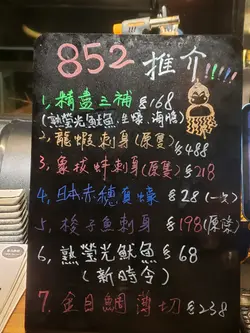 852 推介!!!!!
1, 精盡三補 $168
(熟螢光魷魚,生蠔,海膽)
2, 龍蝦刺身(原隻)
$488
3, 象拔蚌刺身(原隻) $218
4, 日本赤穗青蠔 $28 (一隻)
5, 梭子魚刺身 $198 (原條)
6, 熟螢光魷魚 $68
(新時令)
7. 金目鯛薄切 $238